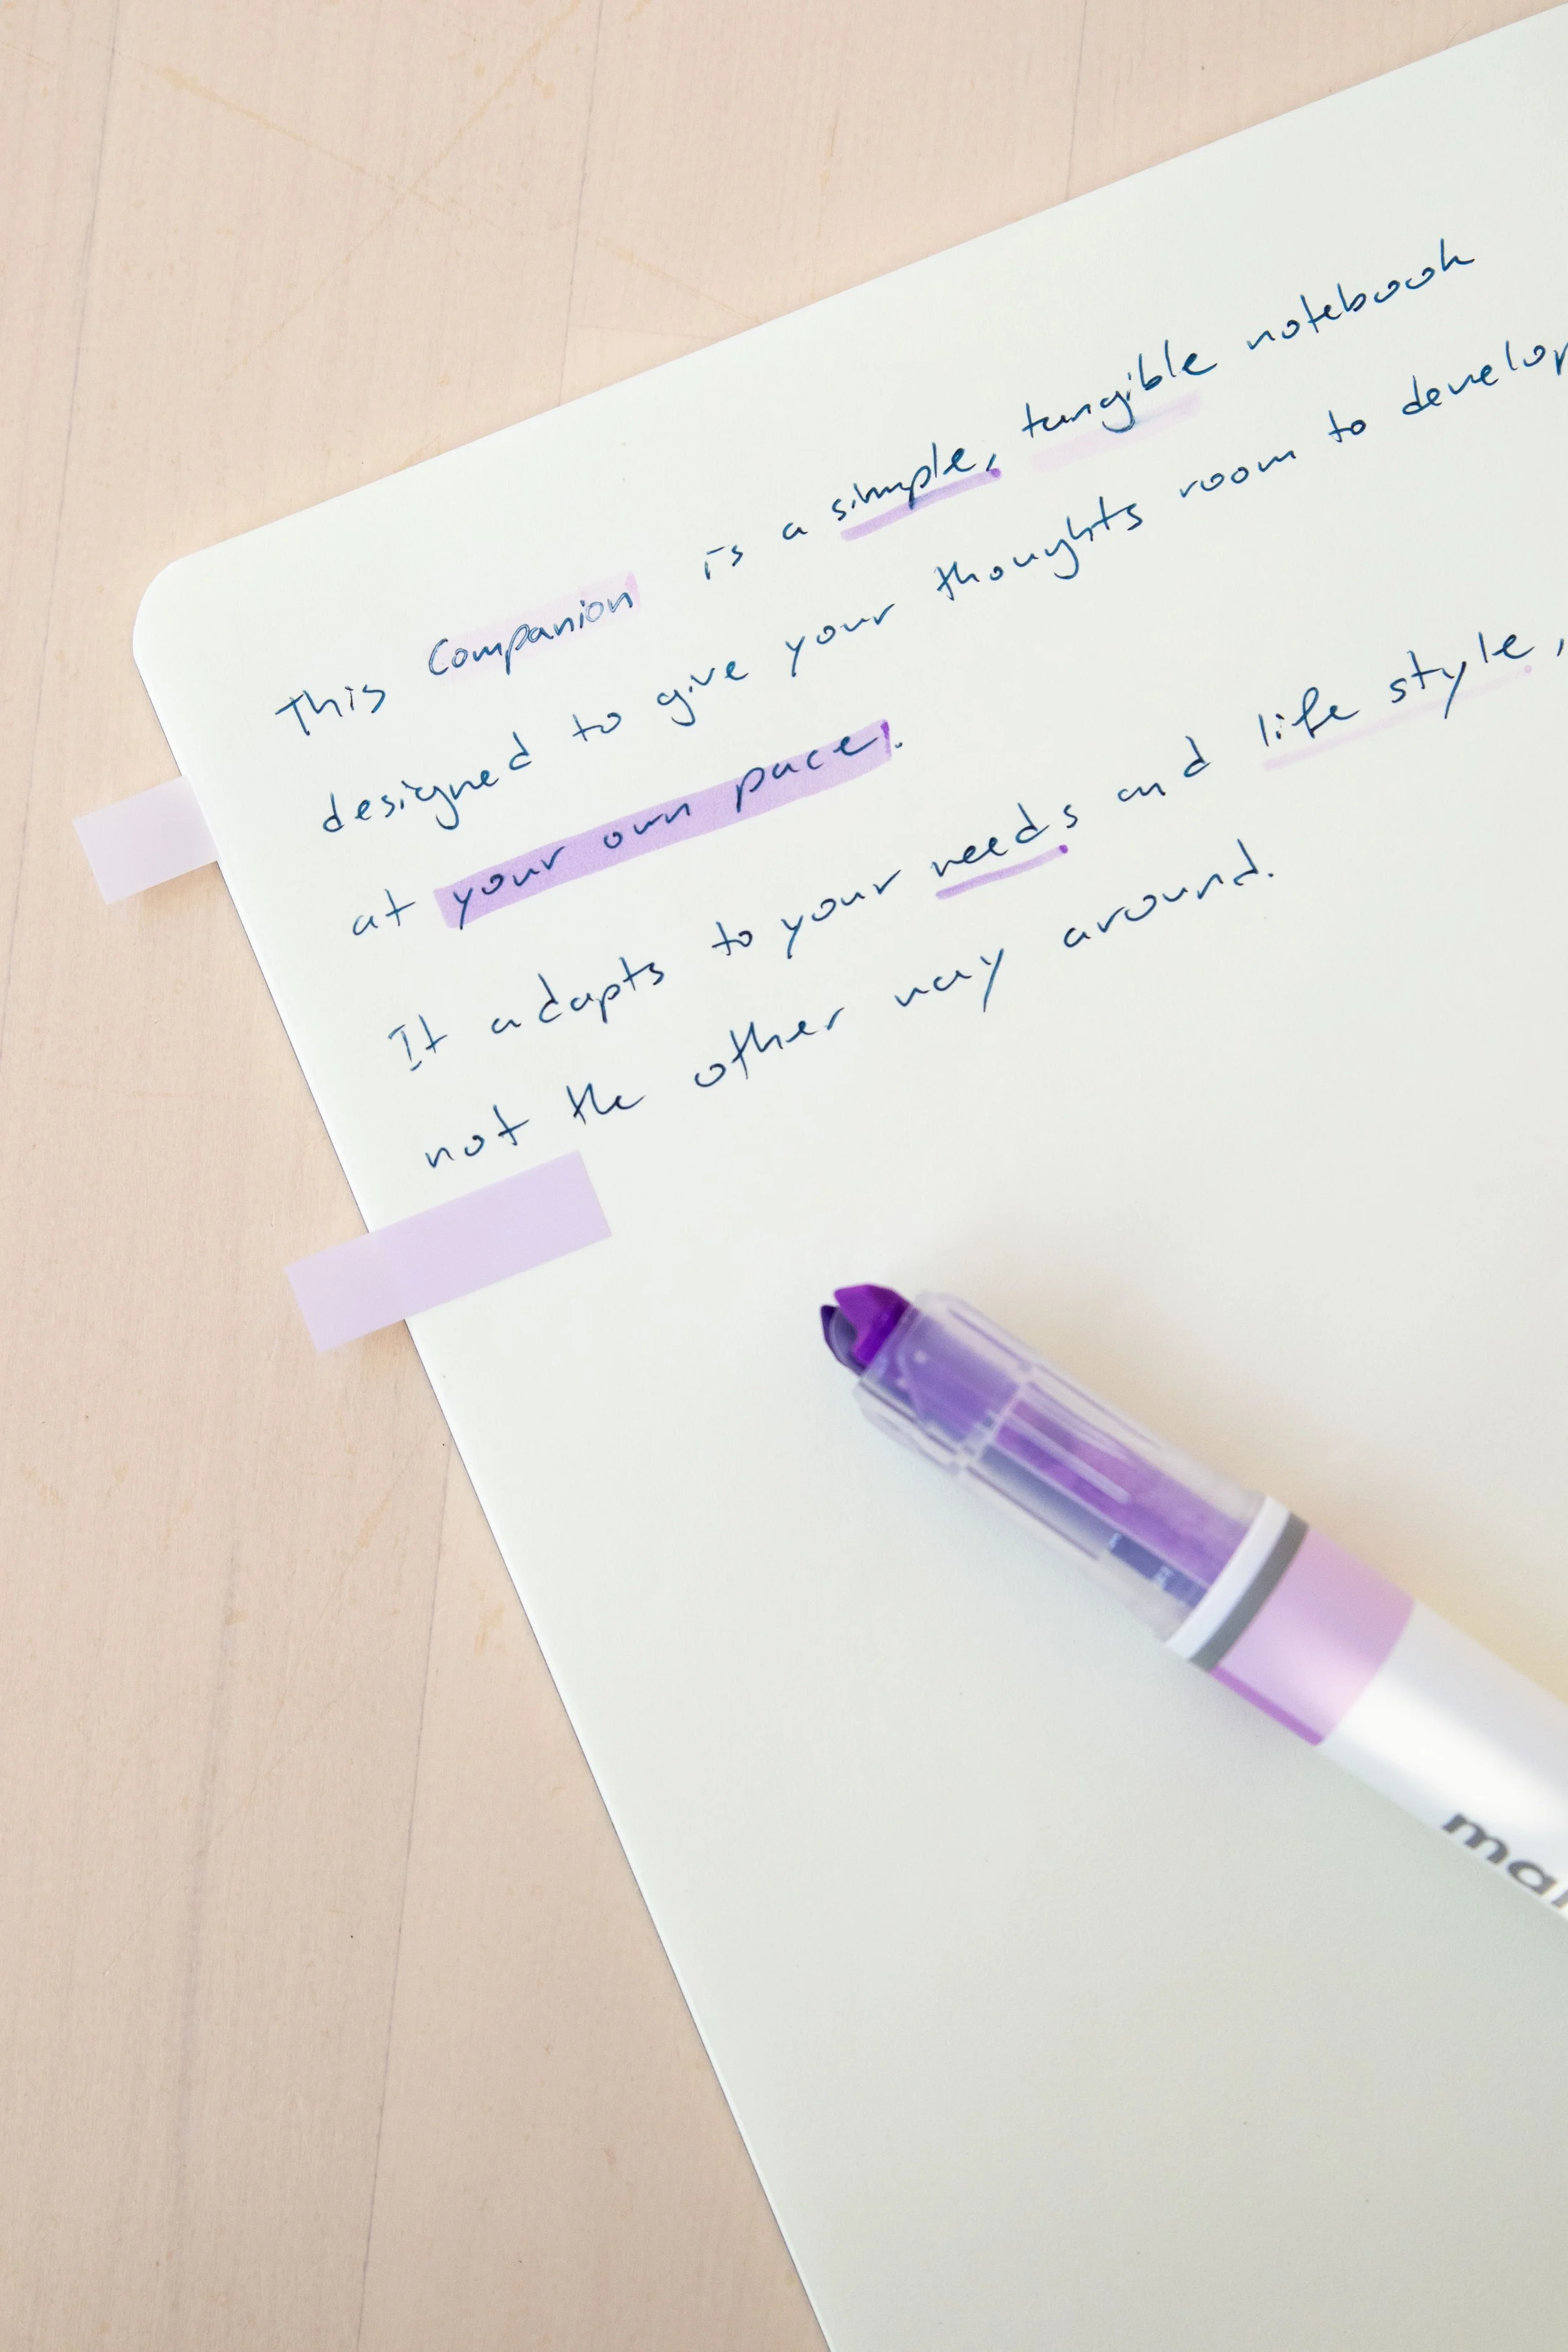 This Companion is a simple, tangible notebook
designed to give your thoughts room to develop
at your own pace.
It adapts to your needs and life style,
not the other way around.